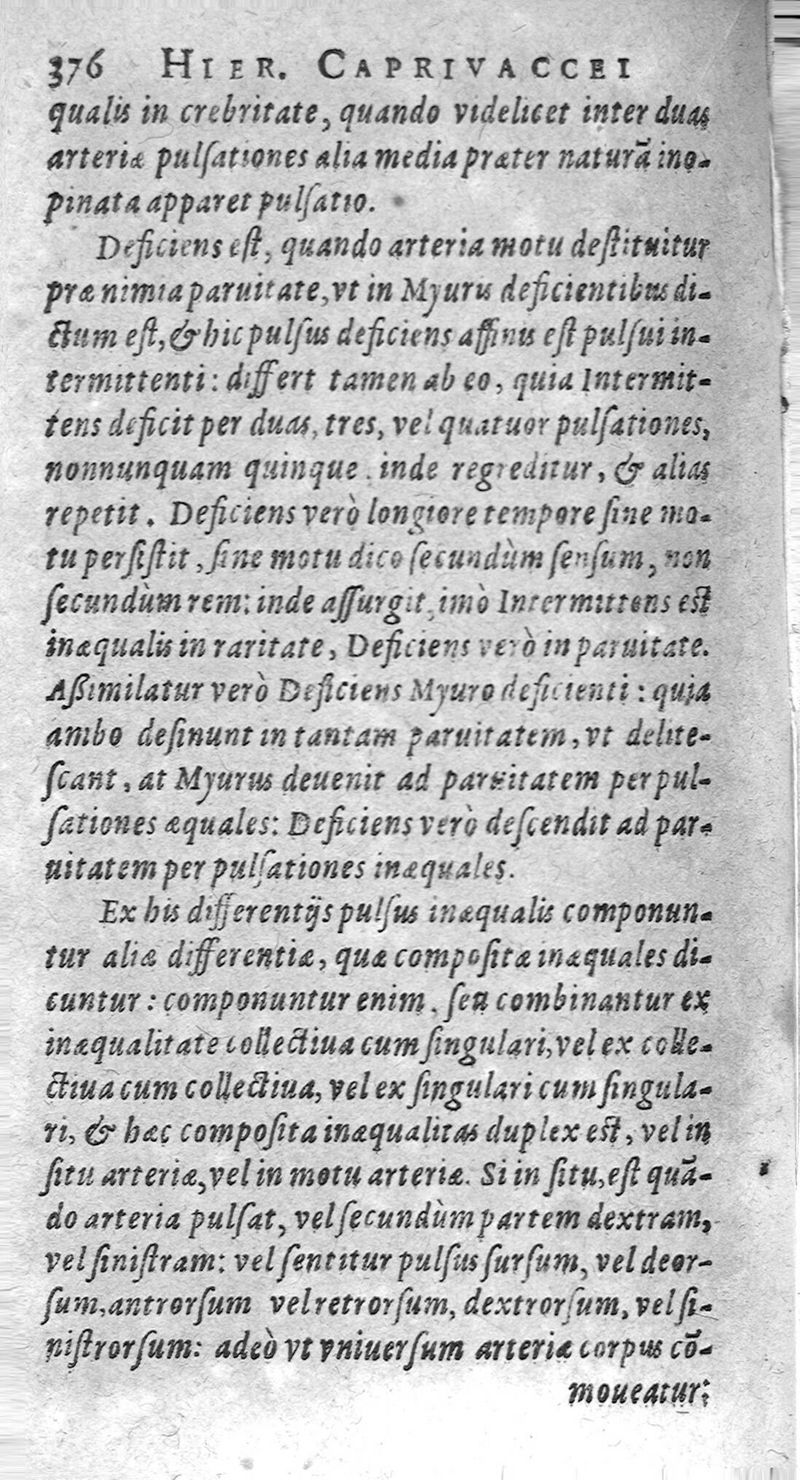 376 HIER. CAPRIVACCEI
qualis in crebritate, quando videlicet inter duas
arteriæ pulſationes alia media præter naturā ino-
pinata apparet pulſatio.
Deficiens eſt, quando arteria motu deſtituitur
præ nimia paruitate, vt in Myuris deficientibus di-
ctum eſt, & hic pulſus deficiens affinis eſt pulſui in-
termittenti: differt tamen ab eo, quia Intermit-
tens deficit per duas, tres, vel quatuor pulſationes,
nonnunquam quinque. inde regreditur, & alias
repetit. Deficiens verò longiore tempore ſine mo-
tu perſiſtit, ſine motu dico ſecundùm ſenſum, non
ſecundùm rem: inde aſſurgit, imò Intermittens eſt
inæqualis in raritate, Deficiens verò in paruitate.
Aßimilatur verò Deficiens Myuro deficienti: quia
ambo deſinunt in tantam paruitatem, vt delite-
ſcant, at Myurus deuenit ad paruitatem per pul-
ſationes æquales: Deficiens verò deſcendit ad par-
uitatem per pulſationes inæquales.
Ex his differentijs pulſus inæqualis componun-
tur aliæ differentiæ, quæ compoſitæ inæquales di-
cuntur: componuntur enim. ſeu combinantur ex
inæqualitate collectiua cum ſingulari, vel ex colle-
ctiua cum collectiua, vel ex ſingulari cum ſingula-
ri, & hæc compoſita inæqualitas duplex eſt, vel in
ſitu arteriæ, vel in motu arteriæ. Si in ſitu, eſt quā-
do arteria pulſat, vel ſecundùm partem dextram,
vel ſiniſtram: vel ſentitur pulſus ſurſum, vel deor-
ſum, antrorſum vel retrorſum, dextrorſum, vel ſi-
niſtrorſum: adeò vt vniuerſum arteriæ corpus cō-
moueatur: